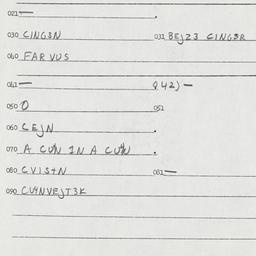 021 —
030 CING3N 031 BEJZ3 CING3R
040 FAR VUS
041 — 042) —
050 O 051
060 CEJN
070 A CUN IN A CUN
080 CVIS4N 081 —
090 CU4NVEJT3K